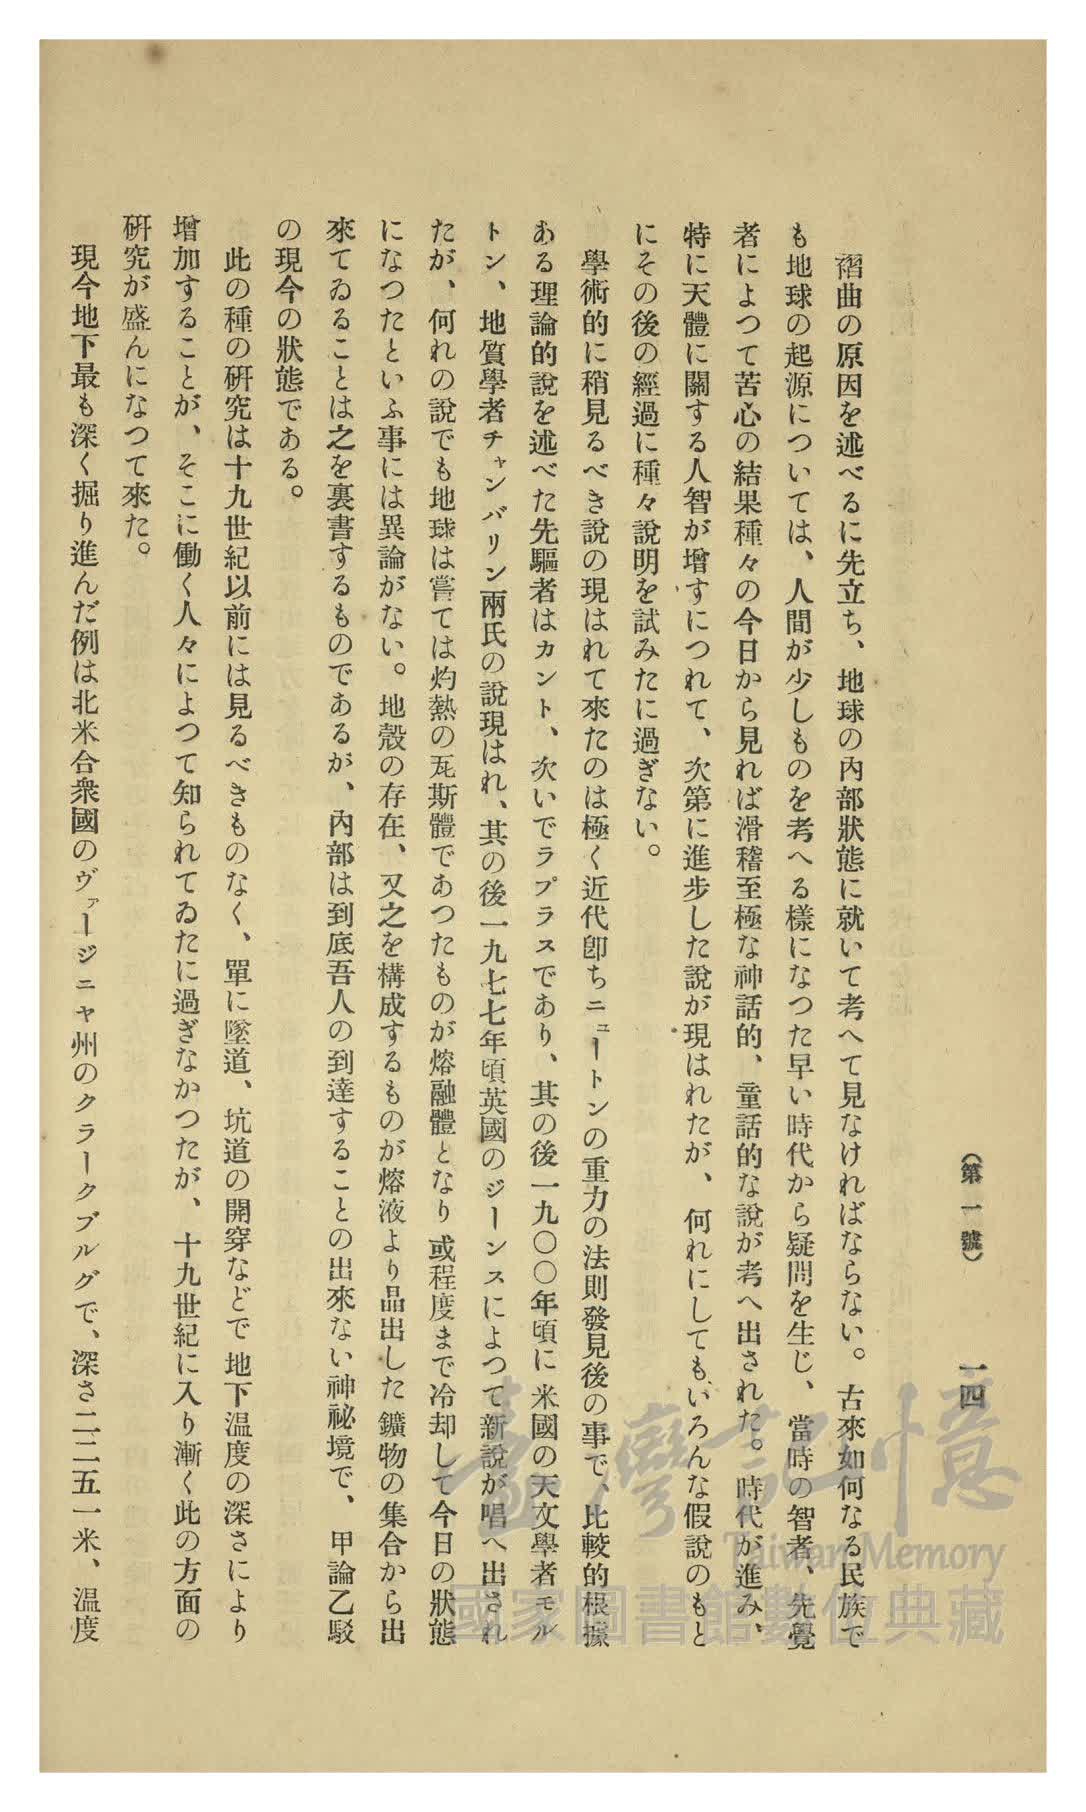 (第一號)
一四
褶曲の原因を述べるに先立ち、地球の內部狀態に就いて考へて見なければならない。古來如何なる民族で
も地球の起源については、人間が少しものを考へる樣になつた早い時代から疑問を生じ、當時の智者、先覺
者によつて苦心の結果種々の今日から見れば滑稽至極な神話的、童話的な說が考へ出された。時代が進み、
特に天體に關する人智が增すにつれて、次第に進步した說が現はれたが、何れにしてもいろんな假說のもと
にその後の經過に種々說明を試みたに過ぎない。
學術的に稍見るべき說の現はれて來たのは極く近代卽ちニュートンの重力の法則發見後の事で、比較的根據
ある理論的說を述べた先驅者はカント、次いでラプラスであり、其の後一九〇〇年頃に米國の天文學者モル
トン、地質學者チャンバリン兩氏の說現はれ、其の後一九七七年頃英國のジーンスによつて新說が唱へ出され
たが、何れの說でも地球は嘗ては灼熱の瓦斯體であつたものが熔融體となり或程度まで冷却して今日の狀態
になつたといふ事には異論がない。地殼の存在、又之を構成するものが熔液より晶出した鑛物の集合から出
來てゐることは之を裏書するものであるが、內部は到底吾人の到達することの出來ない神祕境で、甲論乙駁
の現今の狀態である。
此の種の硏究は十九世紀以前には見るべきものなく、單に墜道、坑道の開穿などで地下溫度の深さにより
增加することが、そこに働く人々によつて知られてゐたに過ぎなかつたが、十九世紀に入り漸く此の方面の
硏究が盛んになつて來た。
現今地下最も深く掘り進んだ例は北米合衆國のヴァージニヤ州のクラークブルグで、深さ二二五一米、溫度
臺灣記憶
Taiwan Memory
國家圖書館數位典藏